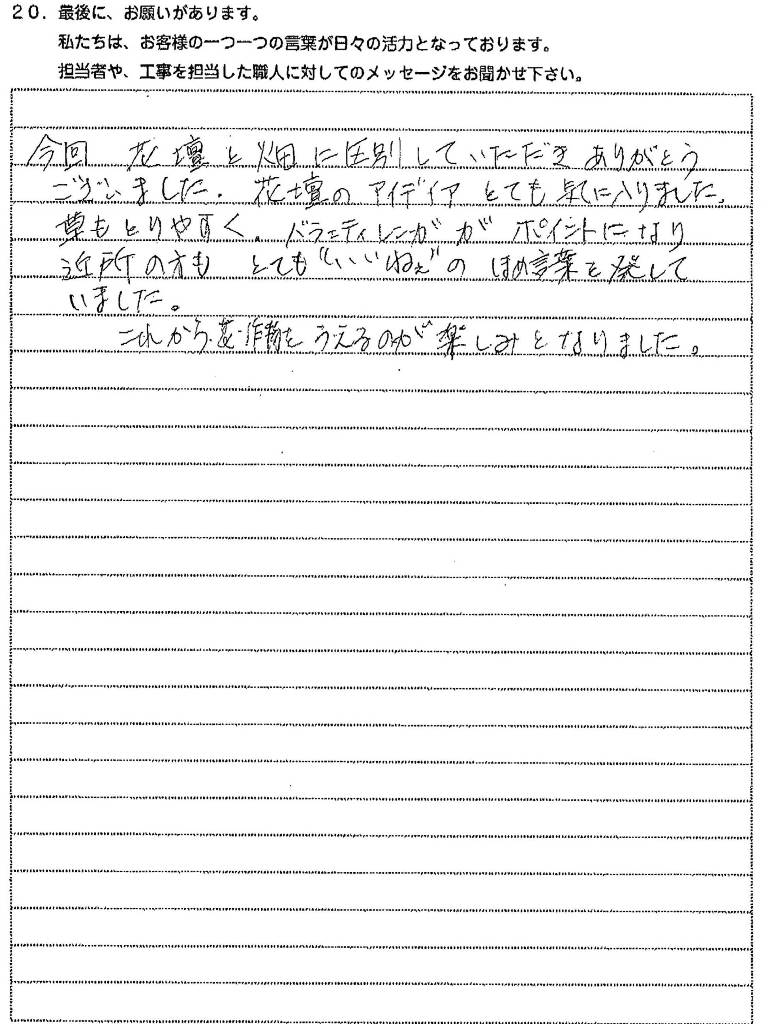 20. 最後に、お願いがあります。
私たちは、お客様の一つ一つの言葉が日々の活力となっております。
担当者や、工事を担当した職人に対してのメッセージをお聞かせ下さい。
今回 花壇と畑に区別していただき ありがとう
ございました. 花壇の アイデイア とても 気に入りました.
草もとりやすく. バラェティレンガが ポイントになり
近所の方も とても"いいねぇ"の ほめ言葉を発して
いました。
これから 花・作物を うえるのが 楽しみとなりました。